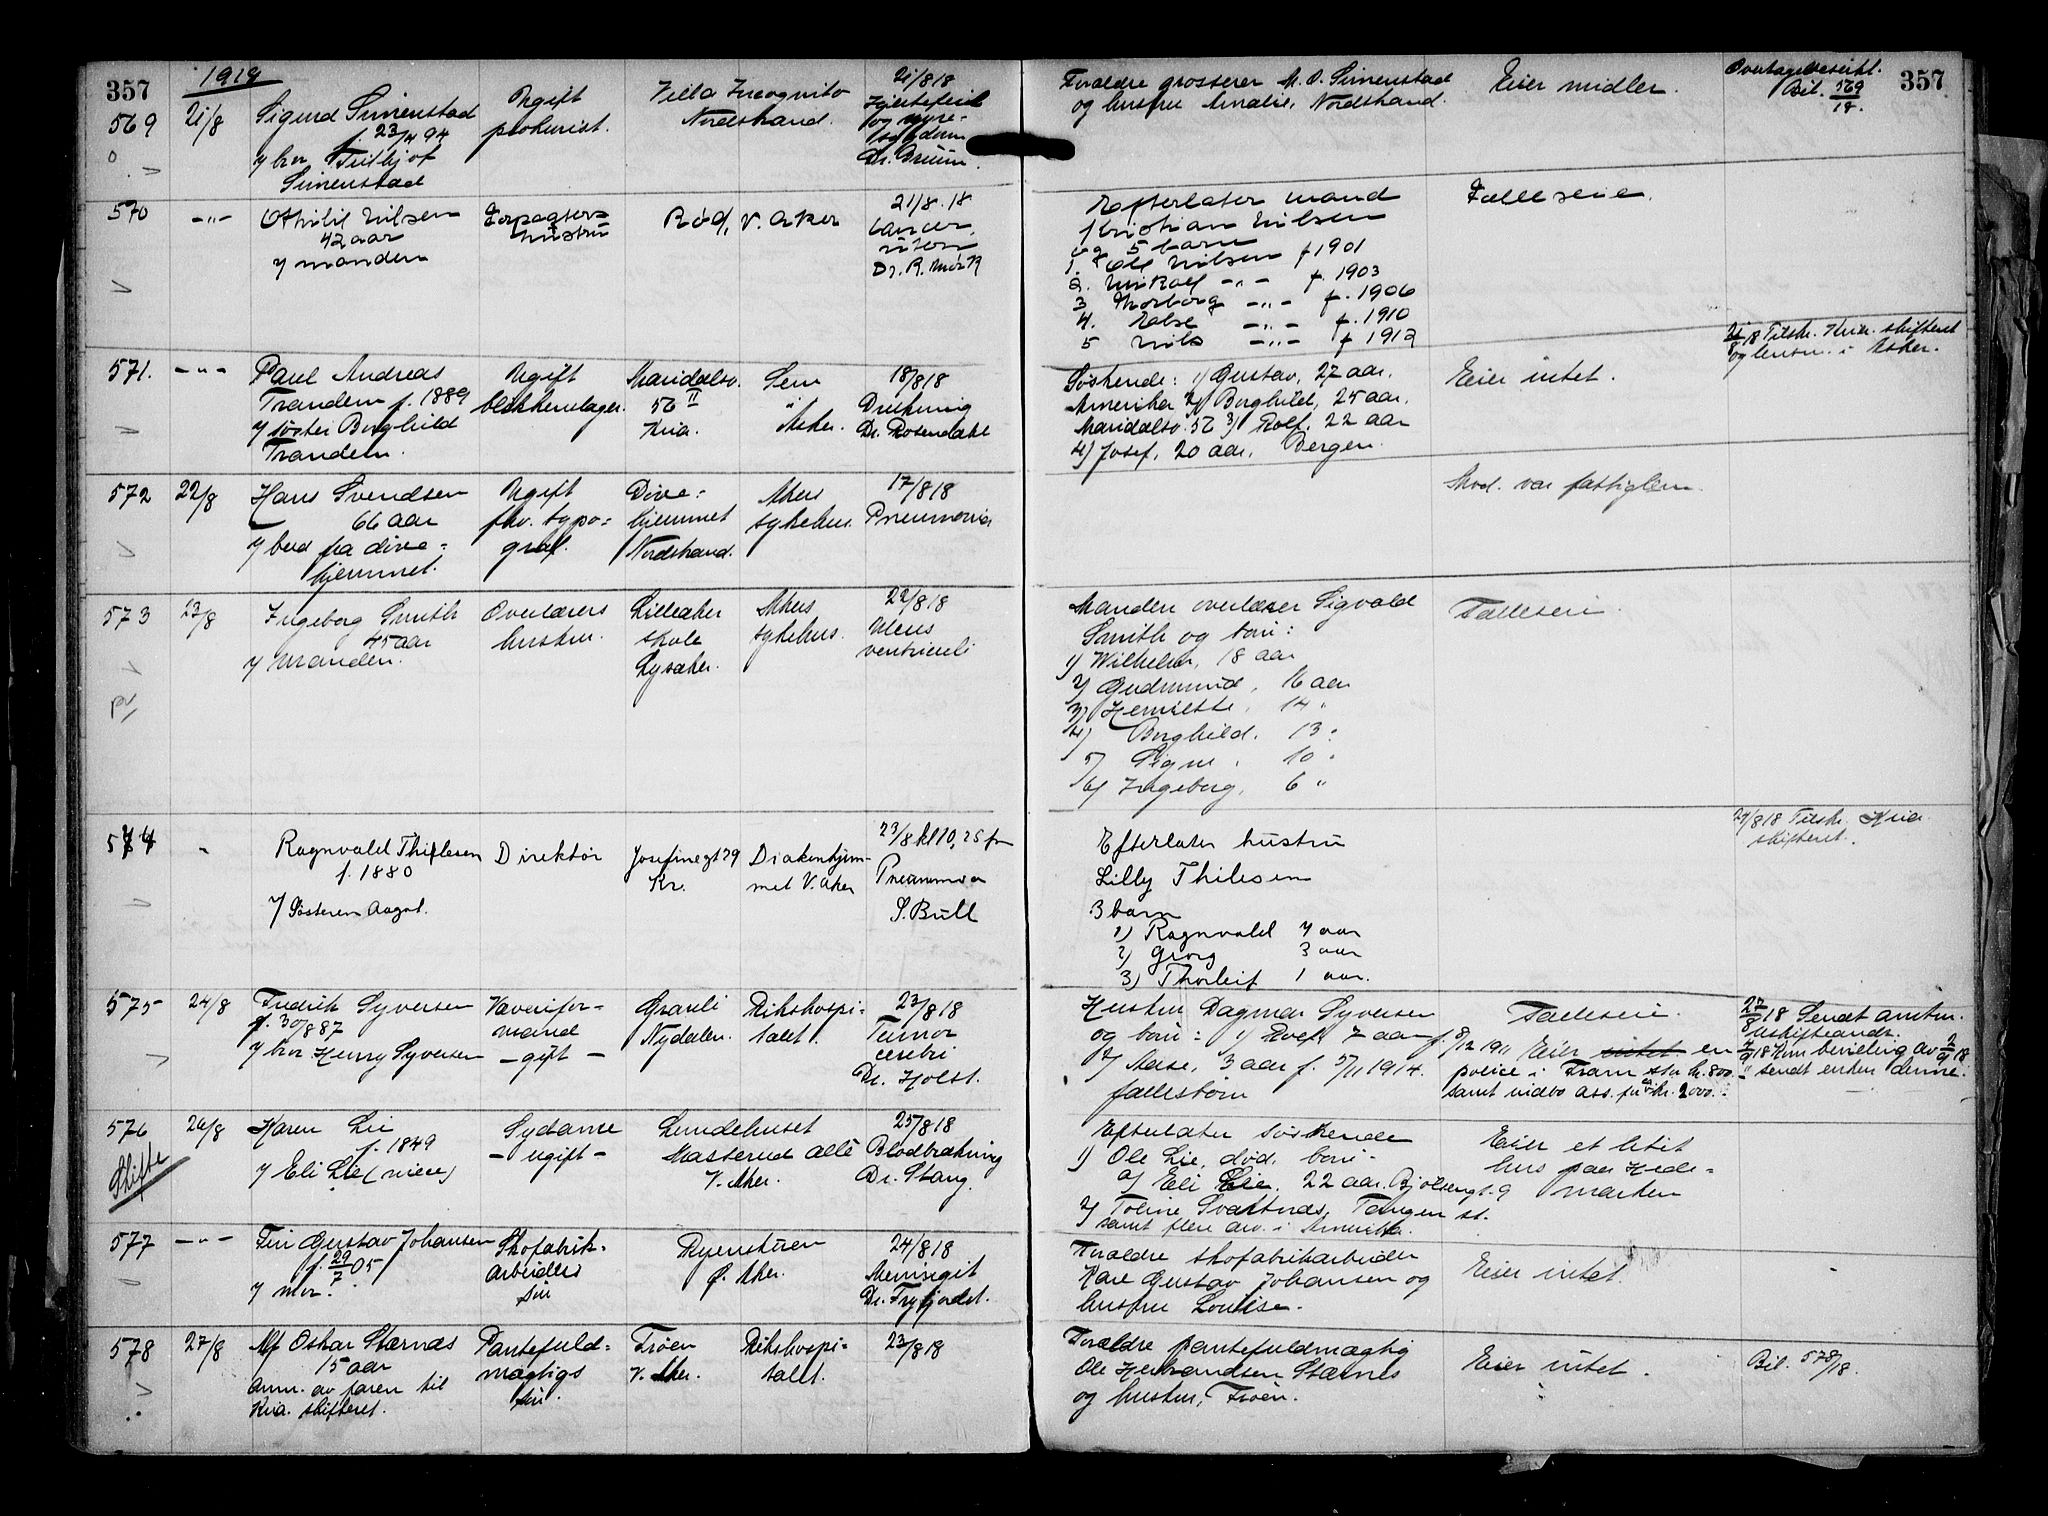 357
1918
569
21/8
Sigurd Simenstad
f. 23/4 94
v/ bror Frithjof
Simenstad
Ugift
prokurist.
Villa Incognito
Nordstrand.
21/8 18
Hjertefeil
og nyre-
sygdom
Dr. Bruun.
Forældre grosserer M. O. Simenstad
og hustru Amalie, Nordstrand.
Eier midler.
Bil. 569/18.
357
570
-"-
Othilie Nilsen
42 aar
v/ manden
Forpagters
hustru
Röd, V. Aker
21/8. 18
Cancer.
uteri
Dr. R. Mörk
Efterlater mand
Kristian Nilsen
og 5 barn
1. Ole Nilsen f 1901
2. Nikoal -"- f. 1903
3 Thorborg -"- f. 1906
4. Else -"- f. 1910
5 Nils -"- f 1912
Fælleseie.
571.
-"-
Paul Andreas
Trandem f. 1889
v/ søster Borghild
Trandem.
Ugift
blikkenslager.
Maridalsv.
56 II
Kria.
Sem
i
Asker.
18/8 18
Drukning
Dr. Rosendahl
Søskende: 1) Gustav, 27 aar,
Amerika 2) Borghild, 25 aar,
Maridalsv. 56 3) Rolf, 22 aar
4) Josef, 20 aar, Bergen.
Eier intet.
21/8 18 Tilskr. Kria. skifteret
og lensm. i Asker.
572
22/8
Hans Svendsen
66 aar
v/ bud fra döve-
hjemmet.
Ugift
fhv. typo-
graf.
Döve-
hjemmet
Nordstrand.
Akers
sykehus.
17/8 18
Pneumonia
Avd. var fattiglem.
573
23/8
Ingeborg Smith
45 aar
v/ manden.
Overlærers
hustru.
Lilleaker
skole
Lysaker.
Akers
sykehus.
22/8 18
Ulcus
ventriculi
Manden overlærer Sigvald
Smith og barn:
1) Wilhelm, 18 aar
2) Gudmund, 16 aar
3) Henriette, 14 "
4) Borghild. 13 "
5) Signe, 10 "
6) Ingeborg, 6 "
Fælleseie.
574
"
Ragnvald Thilesen
f. 1880
v/ Søsteren Aagot.
Direktör
Josefinegt 29
Kr.
Diakonhjem-
met V. Aker
23/8 kl 10,25 fm
Pneumonia
S. Bull
Efterlater hustru
Lilly Thilesen
3 barn
1) Ragnvald 7 aar
2) Georg 3 aar
3) Thorleif 1 aar.
27/8 18 Tilskr. Kria
skifteret.
575
24/8
Fredrik Syversen
f. 30/8 87
v/ bror Henry Syversen
Væverifor-
mand
- gift -
Gravli
Nydalen.
Rikshospi-
talet.
23/8 18
Tumor
cerebri
Dr. Holst.
Hustru Dagmar Syversen
og barn: 1) Rolf 7 aar f. 8/12 1911
2) Aase, 3 aar f. 5/11 1914.
fællesbörn
Fælleseie.
Eier intet en
police i Fram stor kr. 800.-
samt indbo ass. for kr. 2000.-
27/8 18 Sendt anm.
uskifteandr.
4/9 18 Kom. bevilling av 2/9 18
" sendt enken denne.
576
Skifte
26/8
Karen Lie
f. 1849
v/ Eli Lie (niece)
Sydame
- ugift -
Lundehuset
Masterud allé
V. Aker.
25/8 18
Blodbrækning
Dr. Stang.
Efterlater søskende
1) Ole Lie, död, barn-
a) Eli Lie, 22 aar. Bjølsengt. 9
2) Toline Svartnæs, Tangen st.
samt flere arv. i Amerika.
Eier et litet
hus paa Hede-
marken
577
-"-
Finn Gustav Johansen
f. 29/7 05
v/ mor.
Skofabrik-
arbeiders
sön
Ryenstuen
Ø. Aker.
24/8 18
Meningit
Dr. Frydjordet.
Forældre skofabrikarbeider
Karl Gustav Johansen og
hustru Louise.
Eier intet.
578
27/8
Alf Oskar Stærnæs
15 aar
Anm. av faren til
Kria. skifteret.
Pantefuld-
mægtigs
sön.
Frøen
V. Aker.
Rikshospi-
talet.
23/8 18
Forældre pantefuldmægtig
Ole Hermandsen Stærnes
og hustru, Frøen.
Eier intet.
Bil. 578/18.